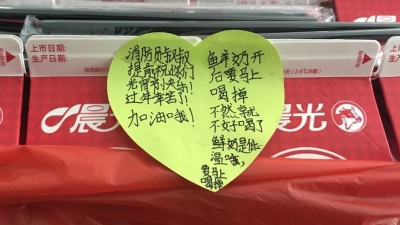 上市日期:
生产日期:
晨光
消防员叔叔
提前祝你们
元宵节快乐!
过年辛苦了!
加油哦!
鲜奶开
后要马上
喝掉
不然就
不好喝了
鲜奶是低
温哦,
要马上
喝掉
晨光